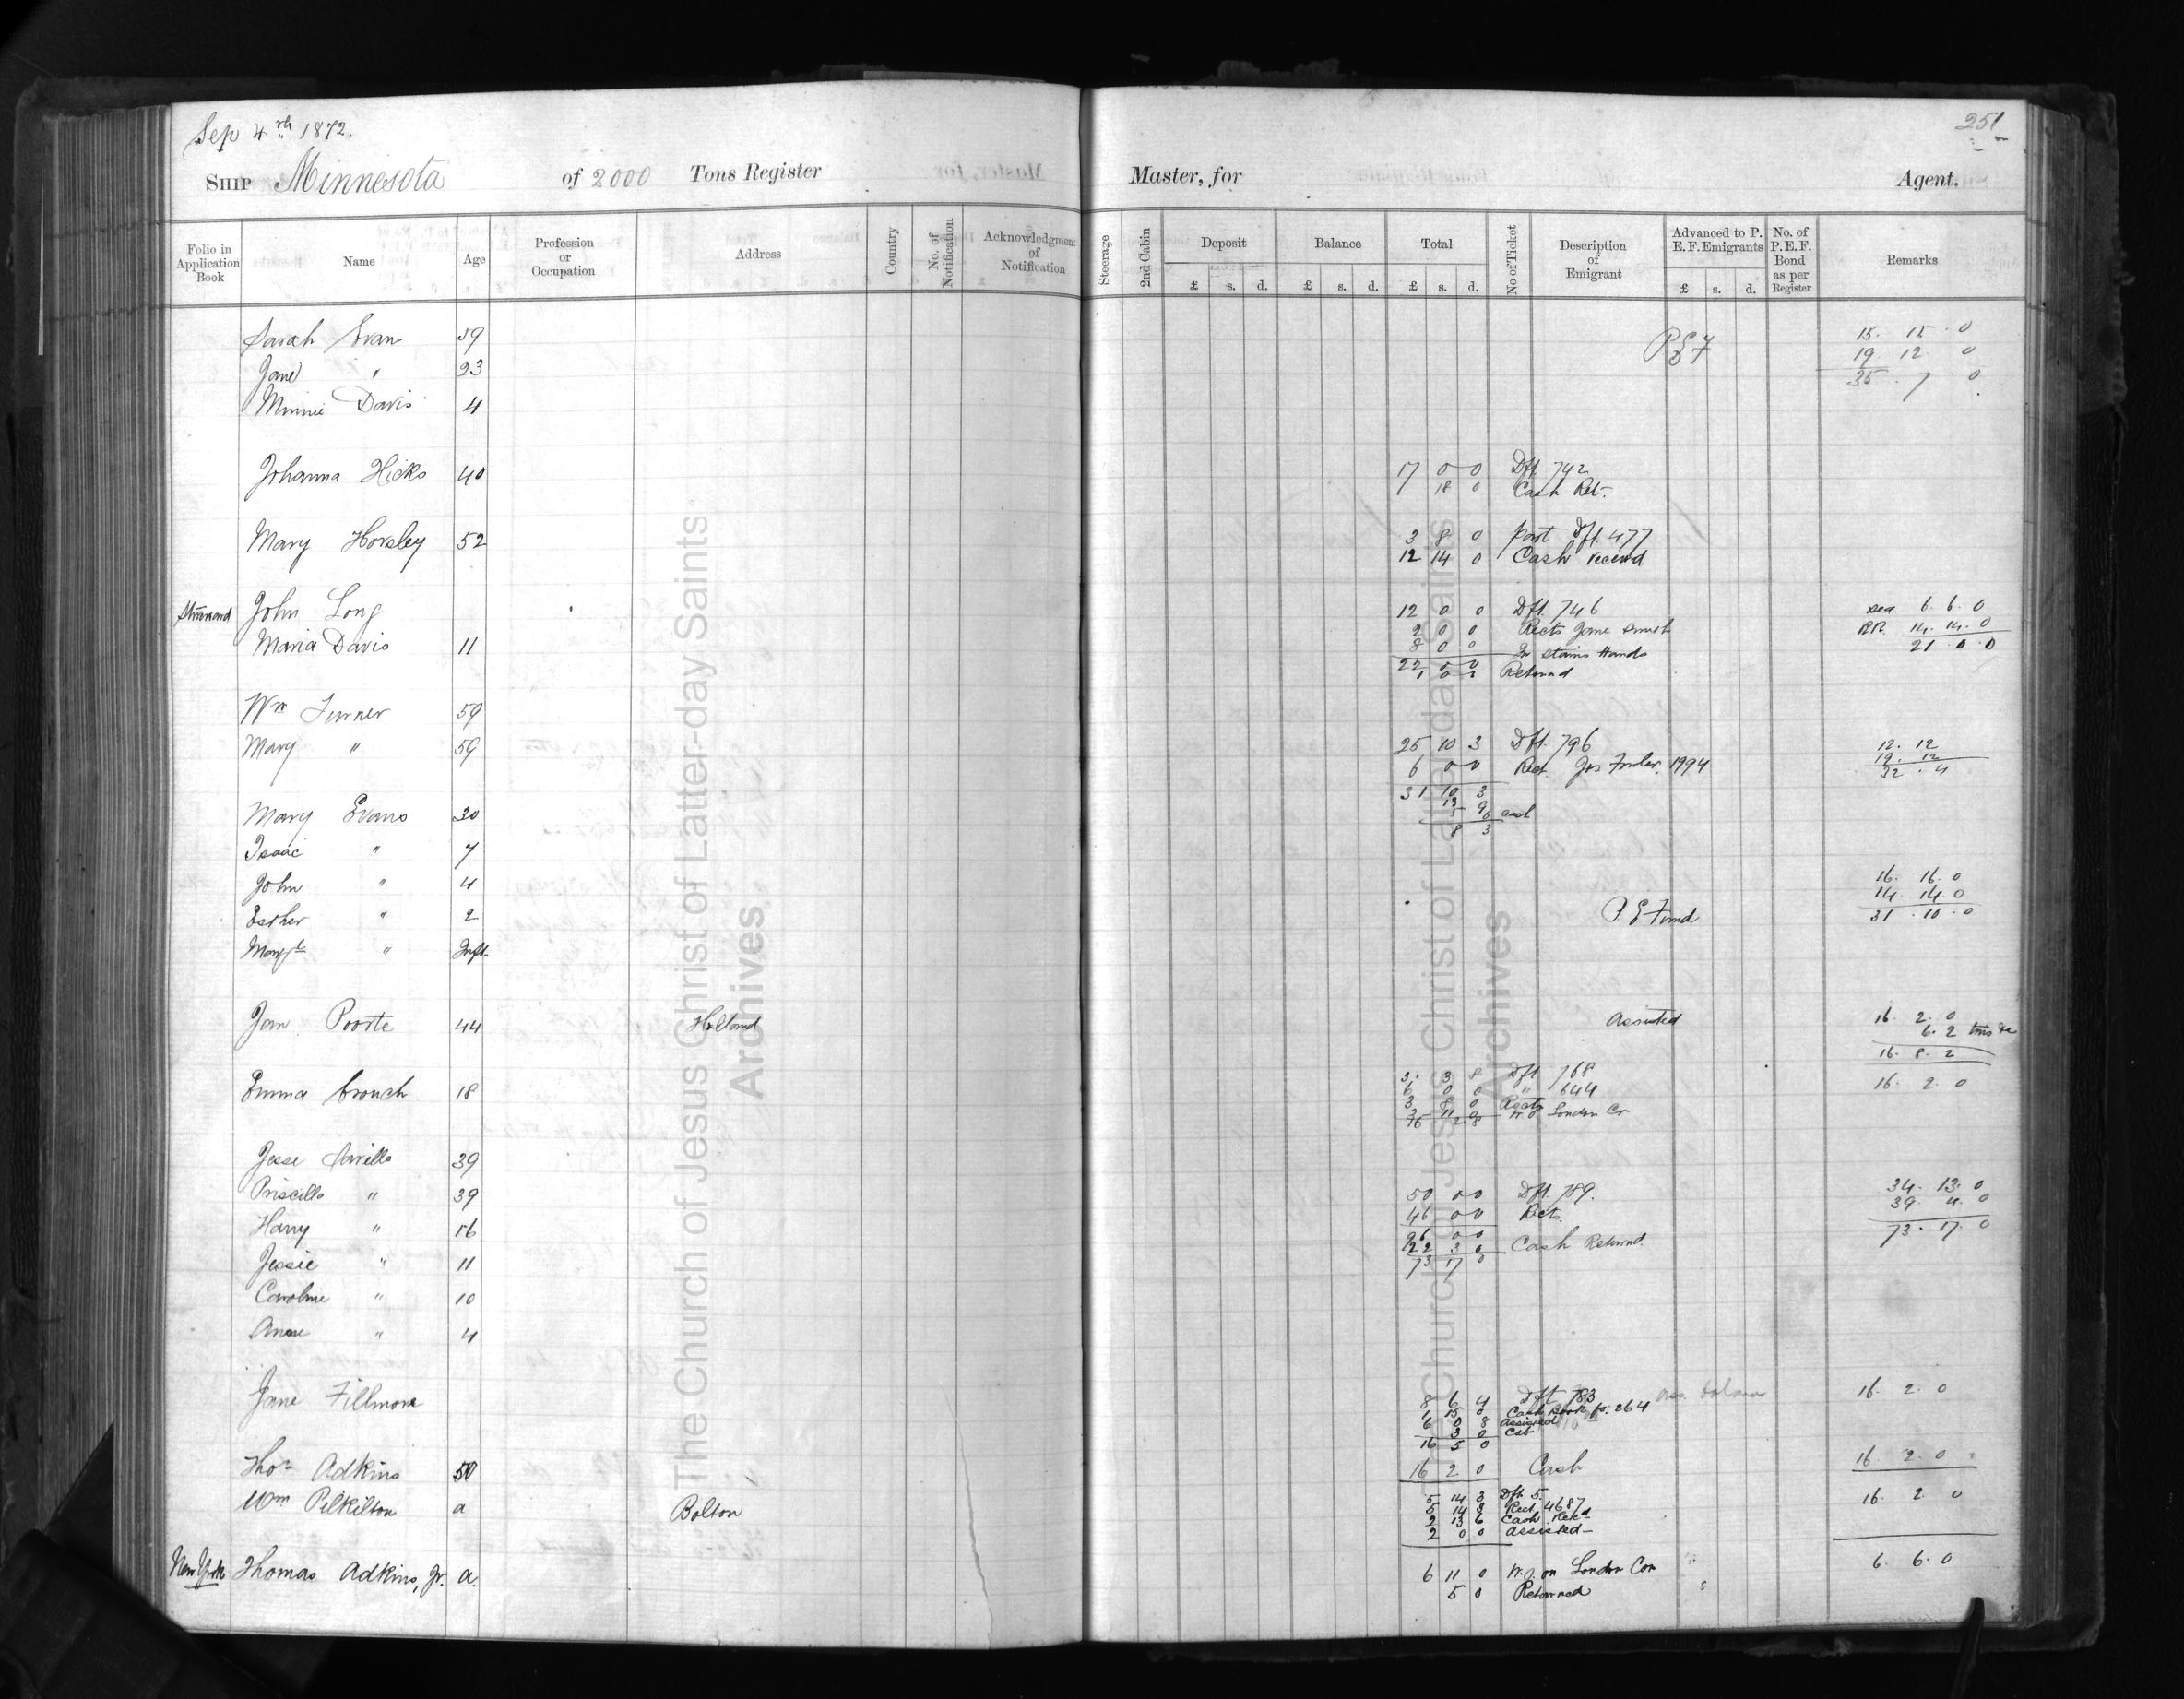 Sep 4th 1872.
251
SHIP Minnesota of 2000 Tons Register Master, for Agent.
Folio in Application Book Name Age Profession or Occupation Address Country No. of Notification Acknowledgment of Notification Steerage 2nd Cabin Deposit Balance Total No of Ticket Description of Emigrant Advanced to P. E. F. Emigrants No. of P. E. F. Bond as per Register Remarks
£ s. d. £ s. d. £ s. d. £ s. d.
Sarah Evan 59
Jane " 23 PEF 19 12 0
Minnie Davis 4 35 . 7 . 0
Johanna Hicks 40 17 0 0 Dft 742
18 0 Cash Ret.
Mary Horsley 52 3 8 0 Part Dft. 477
12 14 0 Cash
John Long 12 0 0 Dft. 746 Sea 6. 6. 0
2 0 0 Rects Jane Smith RR. 14. 14. 0
Maria Davis 11 8 0 0 In Stains Hands 21 . 0 . 0
22 0 0
1 0 0 Returned
Wm Turner 59
Mary " 59 25 10 3 Dft. 796 12. 12
6 0 0 Rect Jos 1994 19. 12
31 10 3 32 . 4
Mary Evans 30 cash
8 3
Isaac " 7
John " 4 16. 16. 0
14 14 0
Esther " 2 P. E Fund 31 . 10 . 0
Margt " Inft
Jan Poorte 44 Holland Assisted 16. 2. 0
6. 2
16. 8. 2
Emma Crouch 18 3. 3 8 Dft 768 16. 2 0
6 0 0 " 644
3 8 0
W.O London Co
Jesse 39
Priscilla " 39 50 0 0 Dft. 789. 34. 13. 0
46 0 0 Rects. 39 4. 0
Harry " 16 96 0 0 73. 17. 0
22 3 0 Cash Returned.
Jessie " 11 73 17 0
Caroline " 10
Annie " 4
Jane Fillmore 8 6 4 Dft 783 ass. balance 16. 2. 0
1 15 0 Cash Book p. 264
6 0 8 Assisted
3 0
16 5 0
Thos Adkins 50 16 2 0 Cash 16. 2. 0
Wm Pilkilton a Bolton 5 14 3 Dft 5. 16. 2 0
5 14 3 Rect. 4687
2 13 6 Cash Rekd
2 0 0 assisted
New York Thomas Adkins, Jr. a. 6 11 0 W.O. on London Con 6. 6. 0
5 0 Returned
The Church of Jesus Christ of Latter-day Saints
Archives
The Church of Jesus Christ of Latter-day Saints
Archives